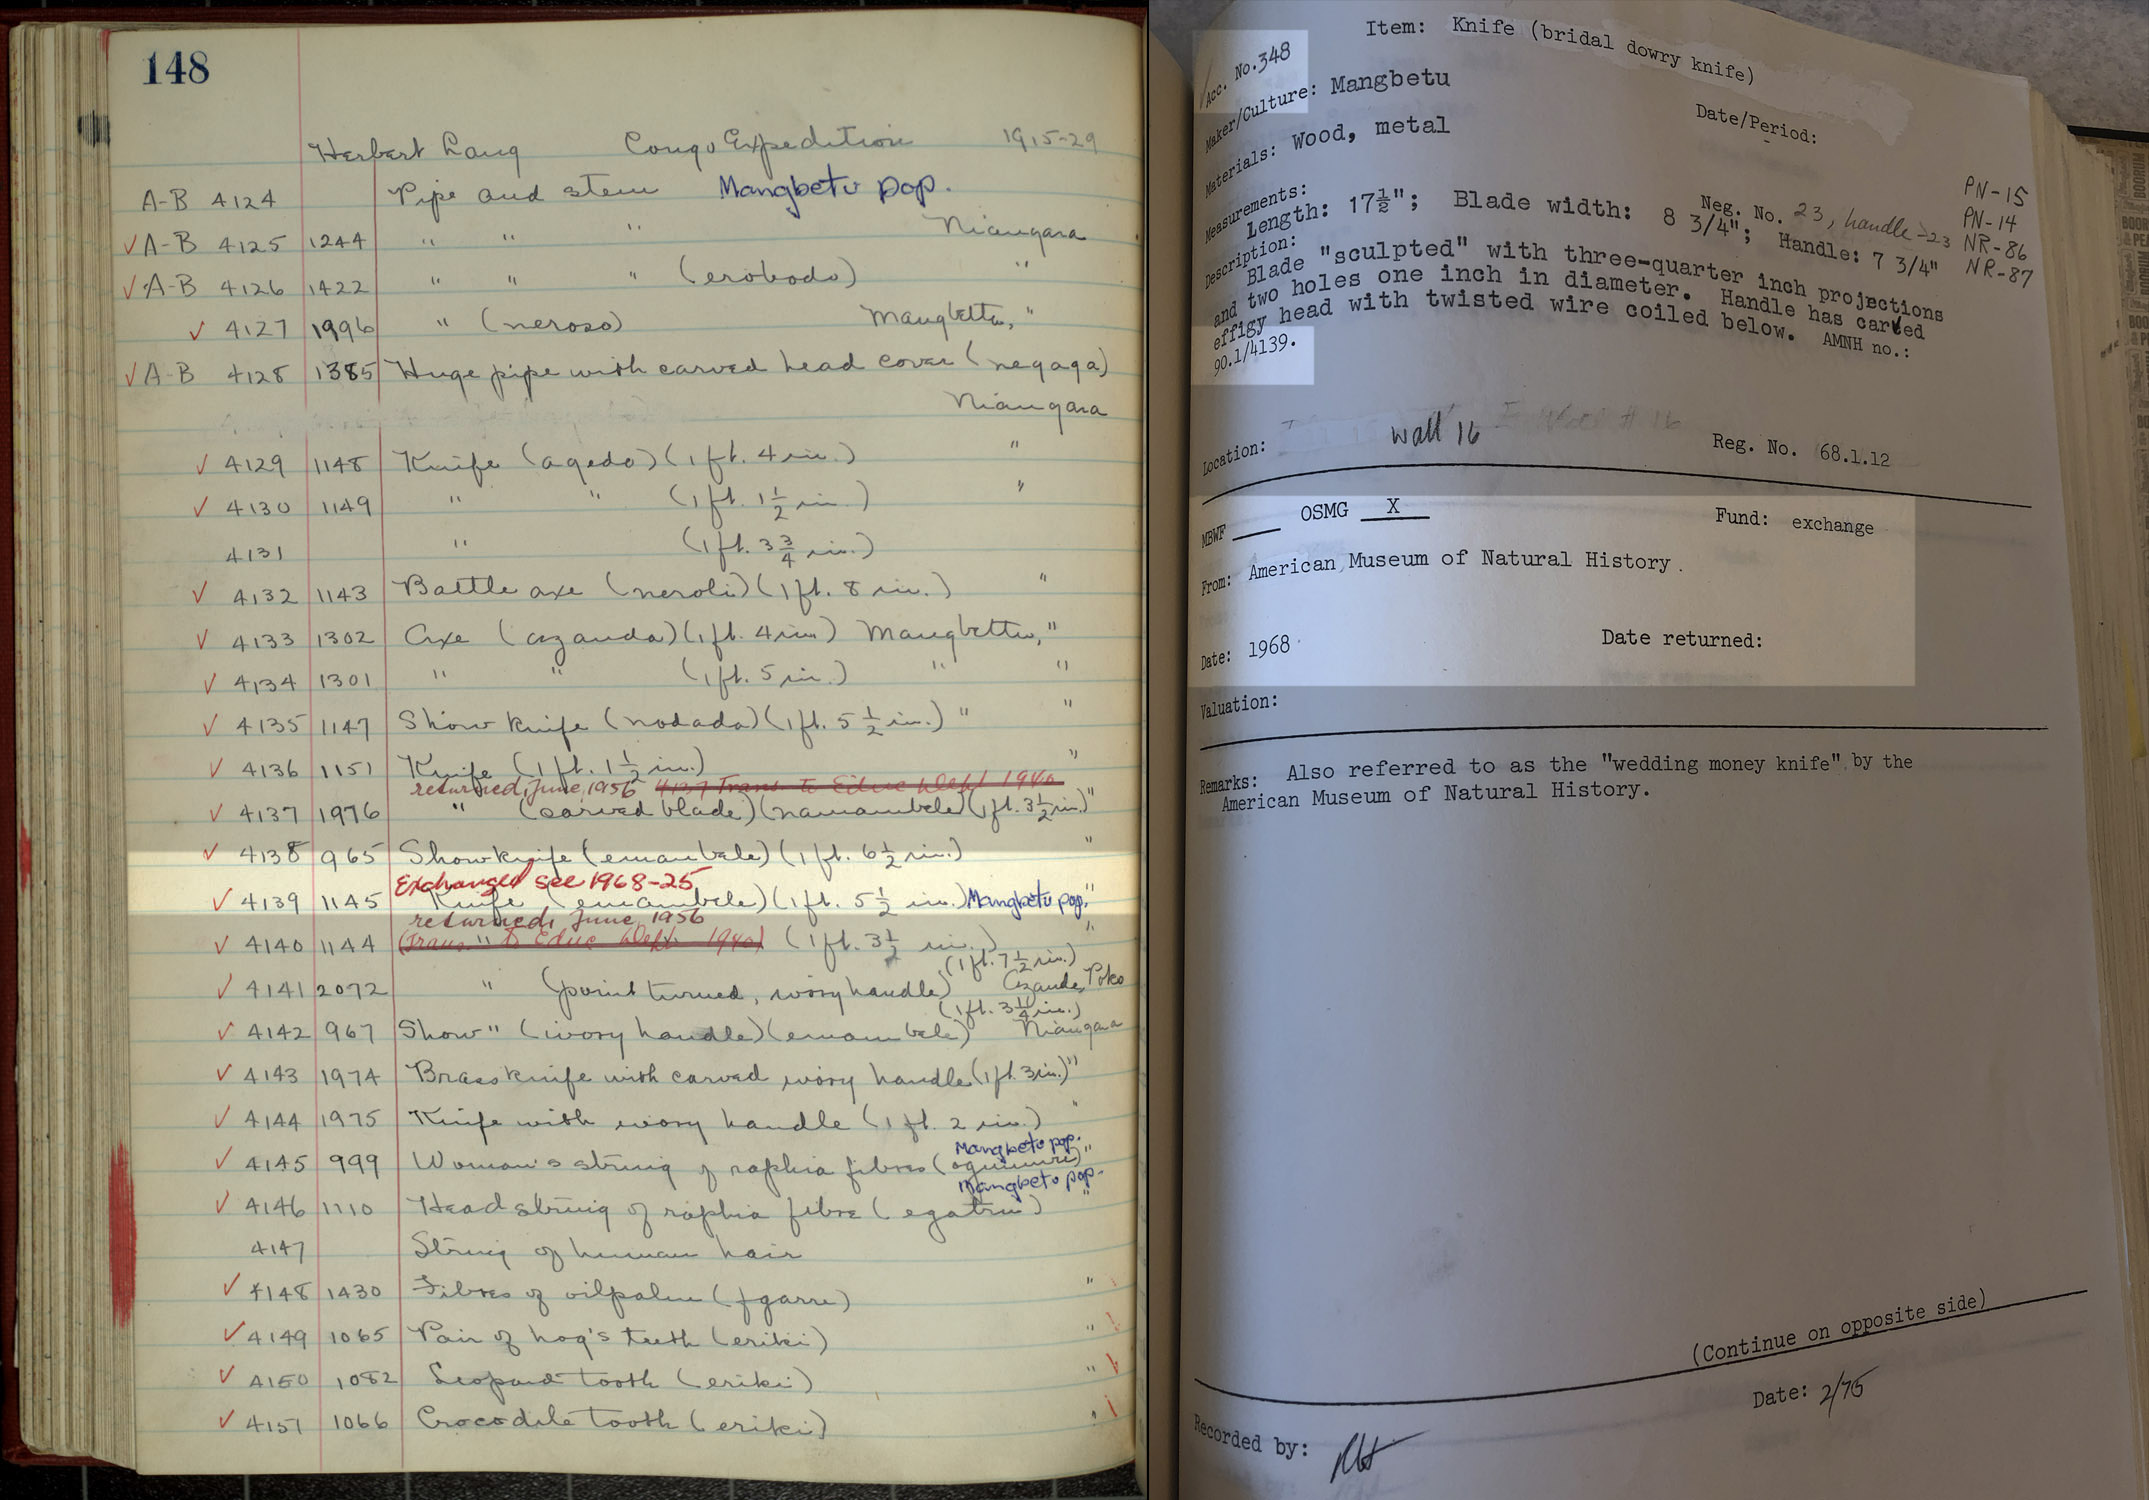 148
Herbert Lang Congo Expedition 1915-29
A-B 4124 Pipe and stem Mangbetu pop.
✓ A-B 4125 1244 " " " Niangara
✓ A-B 4126 1422 " " " (erobodo) "
✓ 4127 1996 " (neroso) Mangbettu, "
✓ A-B 4128 1385 Huge pipe with carved head cover (negaga)
Niangara
✓ 4129 1148 Knife (agedo) (1 ft. 4 in.) "
✓ 4130 1149 " " (1 ft. 1 1/2 in.) "
4131 " (1 ft. 3 3/4 in.)
✓ 4132 1143 Battle axe (neroli) (1 ft. 8 in.) "
✓ 4133 1302 Axe (azanda) (1 ft. 4 in) Mangbettu, "
✓ 4134 1301 " " (1 ft. 5 in.) " "
✓ 4135 1147 Show knife (nodada) (1 ft. 5 1/2 in.) " "
✓ 4136 1151 Knife (1 ft. 1 1/2 in.) "
returned, June, 1956 4137 Trans. to Educ Dept 1940
✓ 4137 1976 " (carved blade) (namambele) (1 ft. 3 1/2 in.) "
✓ 4138 965 Show knife (emambele) (1 ft. 6 1/2 in.) "
Exchanged see 1968-25
✓ 4139 1145 Knife (emambele) (1 ft. 5 1/2 in.) Mangbetu pop. "
returned, June, 1956
✓ 4140 1144 (Trans. " to Educ Dept. 1940) (1 ft. 3 1/2 in.) "
(1 ft. 7 1/2 in.)
✓ 4141 2072 " (point turned, ivory handle) Azande, Poko
(1 ft. 3 1/4 in.)
✓ 4142 967 Show " (ivory handle) (emambele) Niangara
✓ 4143 1974 Brass knife with carved ivory handle (1 ft. 3 in.) "
✓ 4144 1975 Knife with ivory handle (1 ft. 2 in.) "
Mangbetu pop.
✓ 4145 999 Woman's string of raphia fibres "
Mangbetu pop.
✓ 4146 1110 Head string of raphia fibre "
4147 String of human hair
✓ 4148 1430 Fibres of oilpalm "
✓ 4149 1065 Pair of hog's teeth (eriki) "
✓ 4150 1082 Leopard tooth (eriki) "
✓ 4151 1066 Crocodile tooth (eriki) "
Item: Knife (bridal dowry knife)
Acc. No. 348
Maker/Culture: Mangbetu
Date/Period:
-
Materials: Wood, metal
Neg. No. 23, handle-23 PN-15
PN-14
NR-86
NR-87
Measurements:
Length: 17½"; Blade width: 8 3/4"; Handle: 7 3/4"
Description:
Blade "sculpted" with three-quarter inch projections
and two holes one inch in diameter. Handle has carved
effigy head with twisted wire coiled below. AMNH no.:
90.1/4139.
Location: Wall 16 Reg. No. 68.1.12
MBWF ____ OSMG X Fund: exchange
From: American Museum of Natural History.
Date: 1968 Date returned:
Valuation:
Remarks: Also referred to as the "wedding money knife" by the
American Museum of Natural History.
(Continue on opposite side)
Date: 2/75
Recorded by: